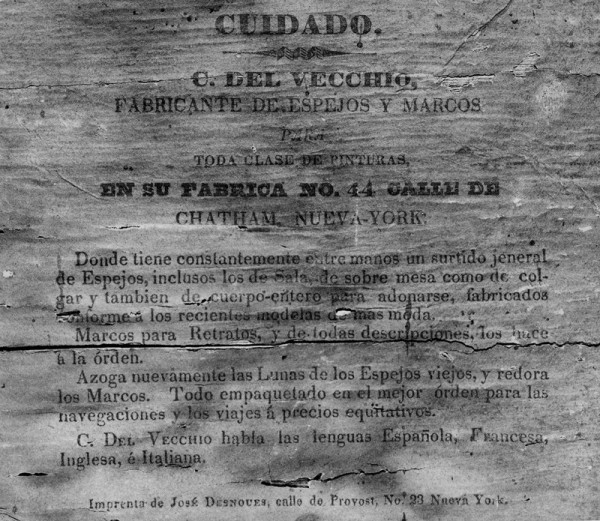 CUIDADO.
C. DEL VECCHIO,
FABRICANTE DE ESPEJOS Y MARCOS
PARA
TODA CLASE DE PINTURAS,
EN SU FABRICA NO. 44 CALLE DE
CHATHAM, NUEVA-YORK.
Donde tiene constantemente entre manos un surtido jeneral
de Espejos, inclusos los de Sala, de sobre mesa como de col-
gar y tambien de cuerpo-entero para adonarse, fabricados
conforme á los recientes modelas de mas moda.
Marcos para Retratos, y de todas descripciones, los hace
á la órden.
Azoga nuevamente las Lunas de los Espejos viejos, y redora
los Marcos. Todo empaquetado en el mejor órden para las
navegaciones y los viajes á precios equitativos.
C. DEL VECCHIO habla las lenguas Española, Francesa,
Inglesa, é Italiana.
Imprenta de José DESNOUES, calle de Provost, No. 23 Nueva York.